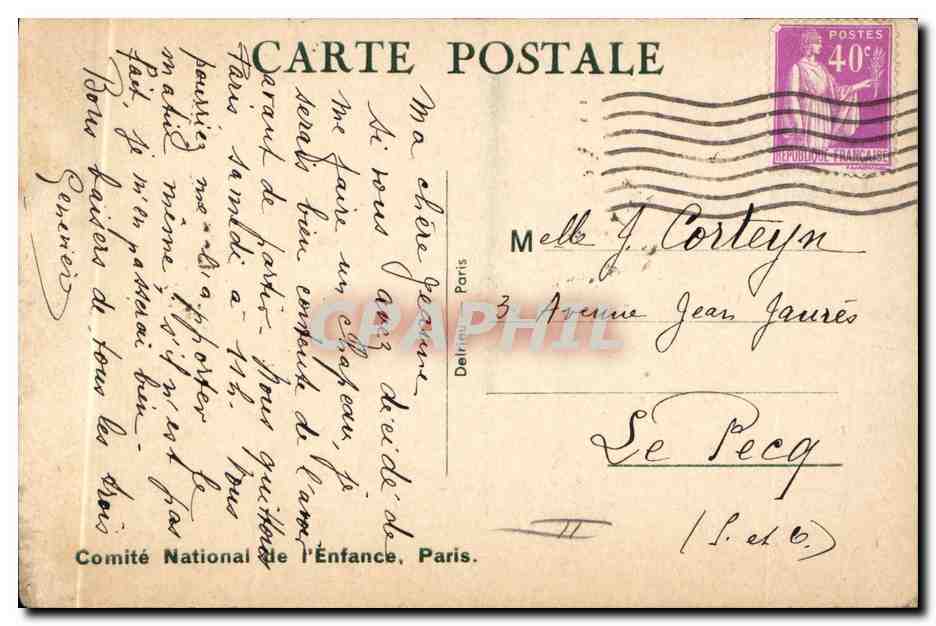 CARTE POSTALE
POSTES
40c
RÉPUBLIQUE FRANÇAISE
Ma chère Jeanne
si vous avez décidé de
me faire un chapeau, je
serais bien contente de l'avoir
avant de partir. Nous quittons
Paris samedi à 11h. Vous
pourriez me l'apporter le
matin même, s'il n'est pas
fait, je m'en passerai bien.
Bons baisers de tous les trois
Geneviève
Delrieu Paris
Melle J. Corteyn
3 Avenue Jean Jaurès
Le Pecq
(S. et O.)
CPAPHIL
Comité National de l'Enfance, Paris.